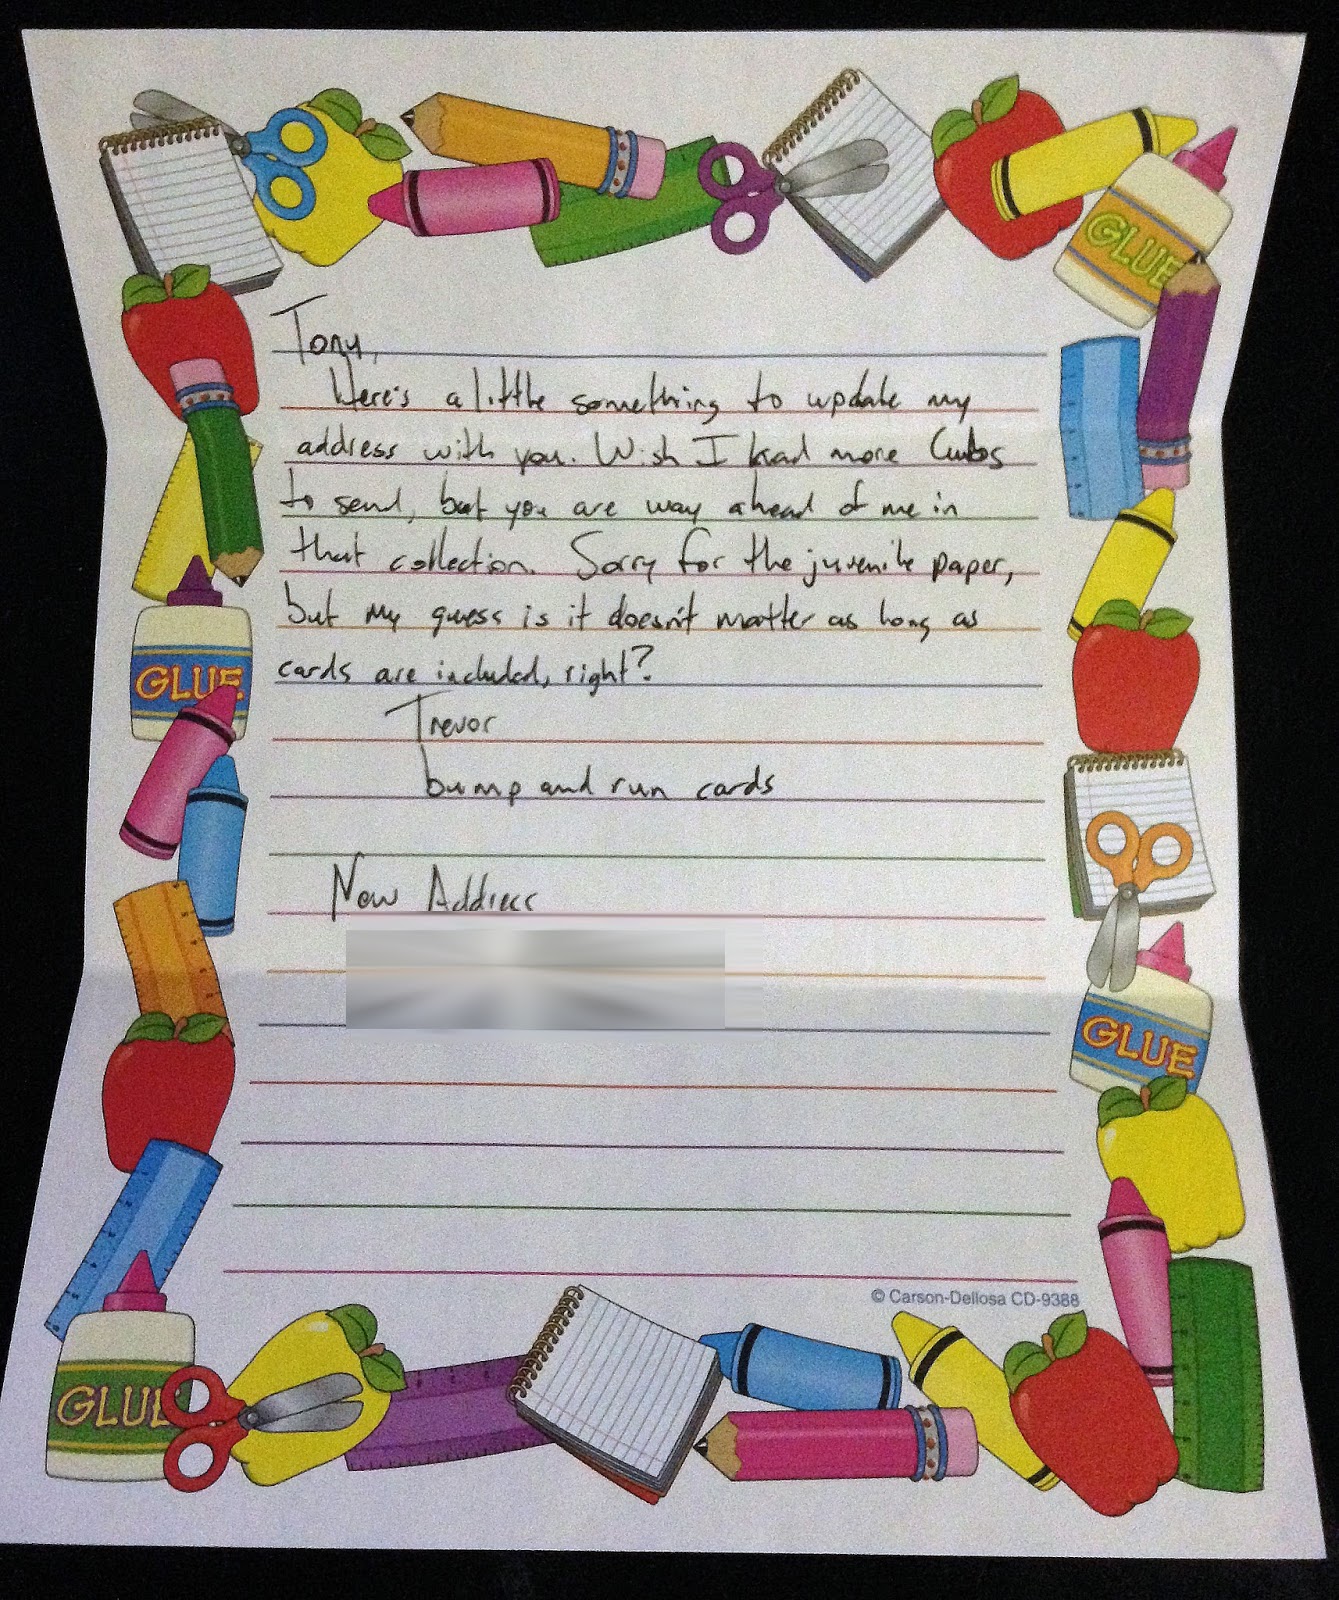 GLUE
Tony,
Here's a little something to update my
address with you. Wish I had more Cubs
to send, but you are way ahead of me in
that collection. Sorry for the juvenile paper,
but my guess is it doesn't matter as long as
cards are included, right?
GLUE
Trevor
bump and run cards
New Address
GLUE
© Carson-Dellosa CD-9388
GLUE